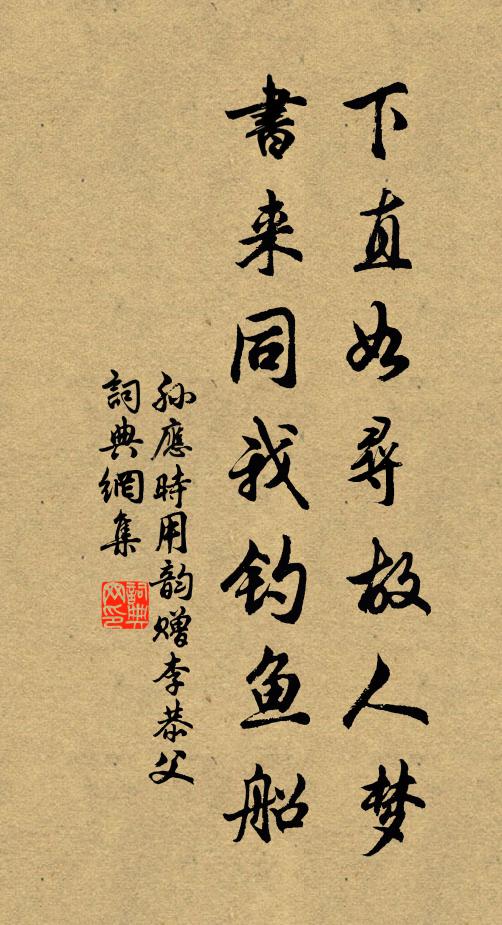 下直如尋故人梦
書来同我钓鱼船
孙應時用韵赠李恭父
詞典網集
詞典
网印